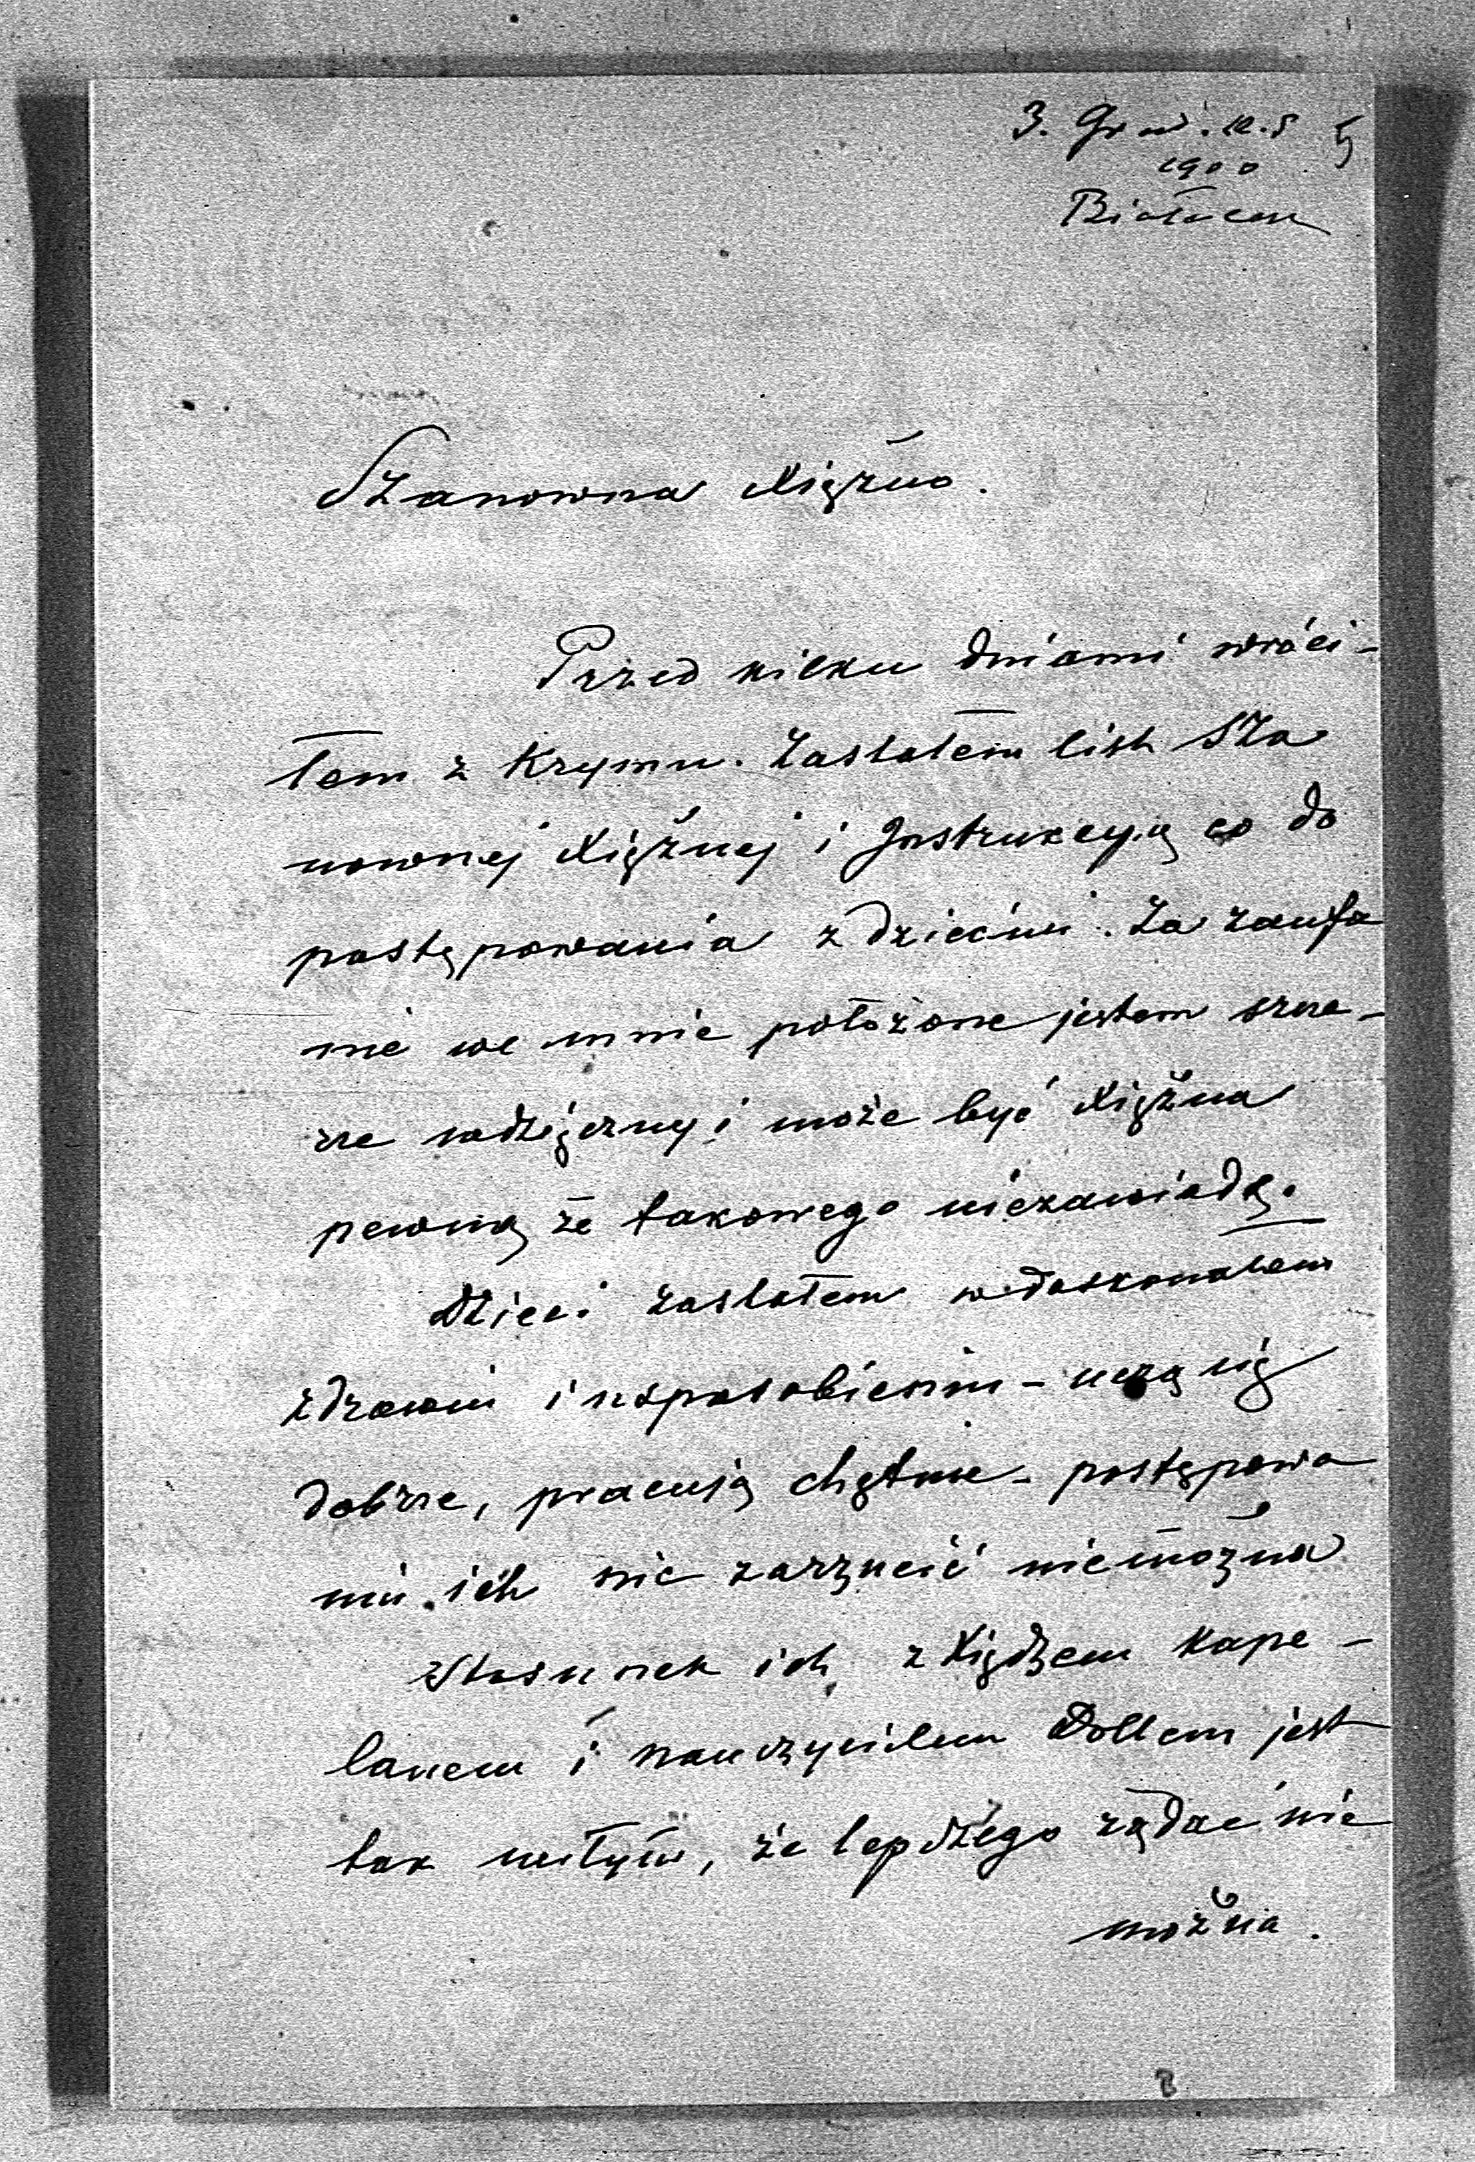 3. Grud. n. s 5
1900
Białocer
Szanowna Xiężno.
Przed kilku dniami wróci-
łem z Krymu. Zastałem list Sza
nownej Xiężnej i Instrukcyją co do
postępowania z dziećmi. Za zaufa
nie we mnie położone jestem szcze-
rze wdzięczny i może być Xiężna
pewną że takowego niezawiodę.
Dzieci zastałem w doskonałem
zdrowiu i usposobieniu - uczą się
dobrze, pracują chętnie - postępowa
niu ich nic zarzucić niemożna
Stosunek ich z Xiędzem Kape-
lanem i nauczycielem Dollem jest
tak miłym, że lepszego żądać nie
można.